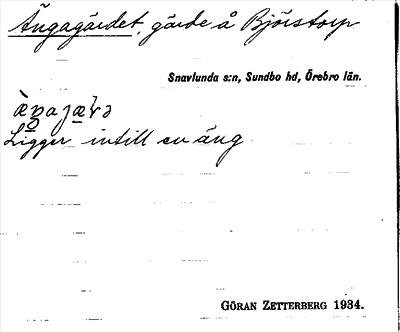 Ängagärdet, gärde å Björstorp
Snavlunda s:n, Sundbo hd, Örebro län.
Ligger intill en äng
GÖRAN ZETTERBERG 1934.